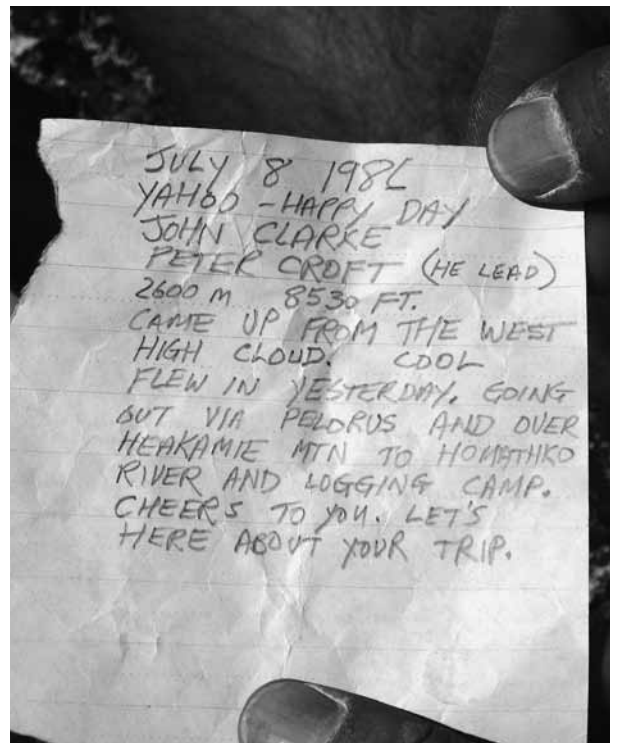 JULY 8 1986
YAHOO - HAPPY DAY
JOHN CLARKE
PETER CROFT (HE LEAD)
2600 M 8530 FT.
CAME UP FROM THE WEST
HIGH CLOUD. COOL
FLEW IN YESTERDAY. GOING
OUT VIA PELORUS AND OVER
HEAKAMIE MTN TO HOMATHKO
RIVER AND LOGGING CAMP.
CHEERS TO YOU. LET'S
HERE ABOUT YOUR TRIP.